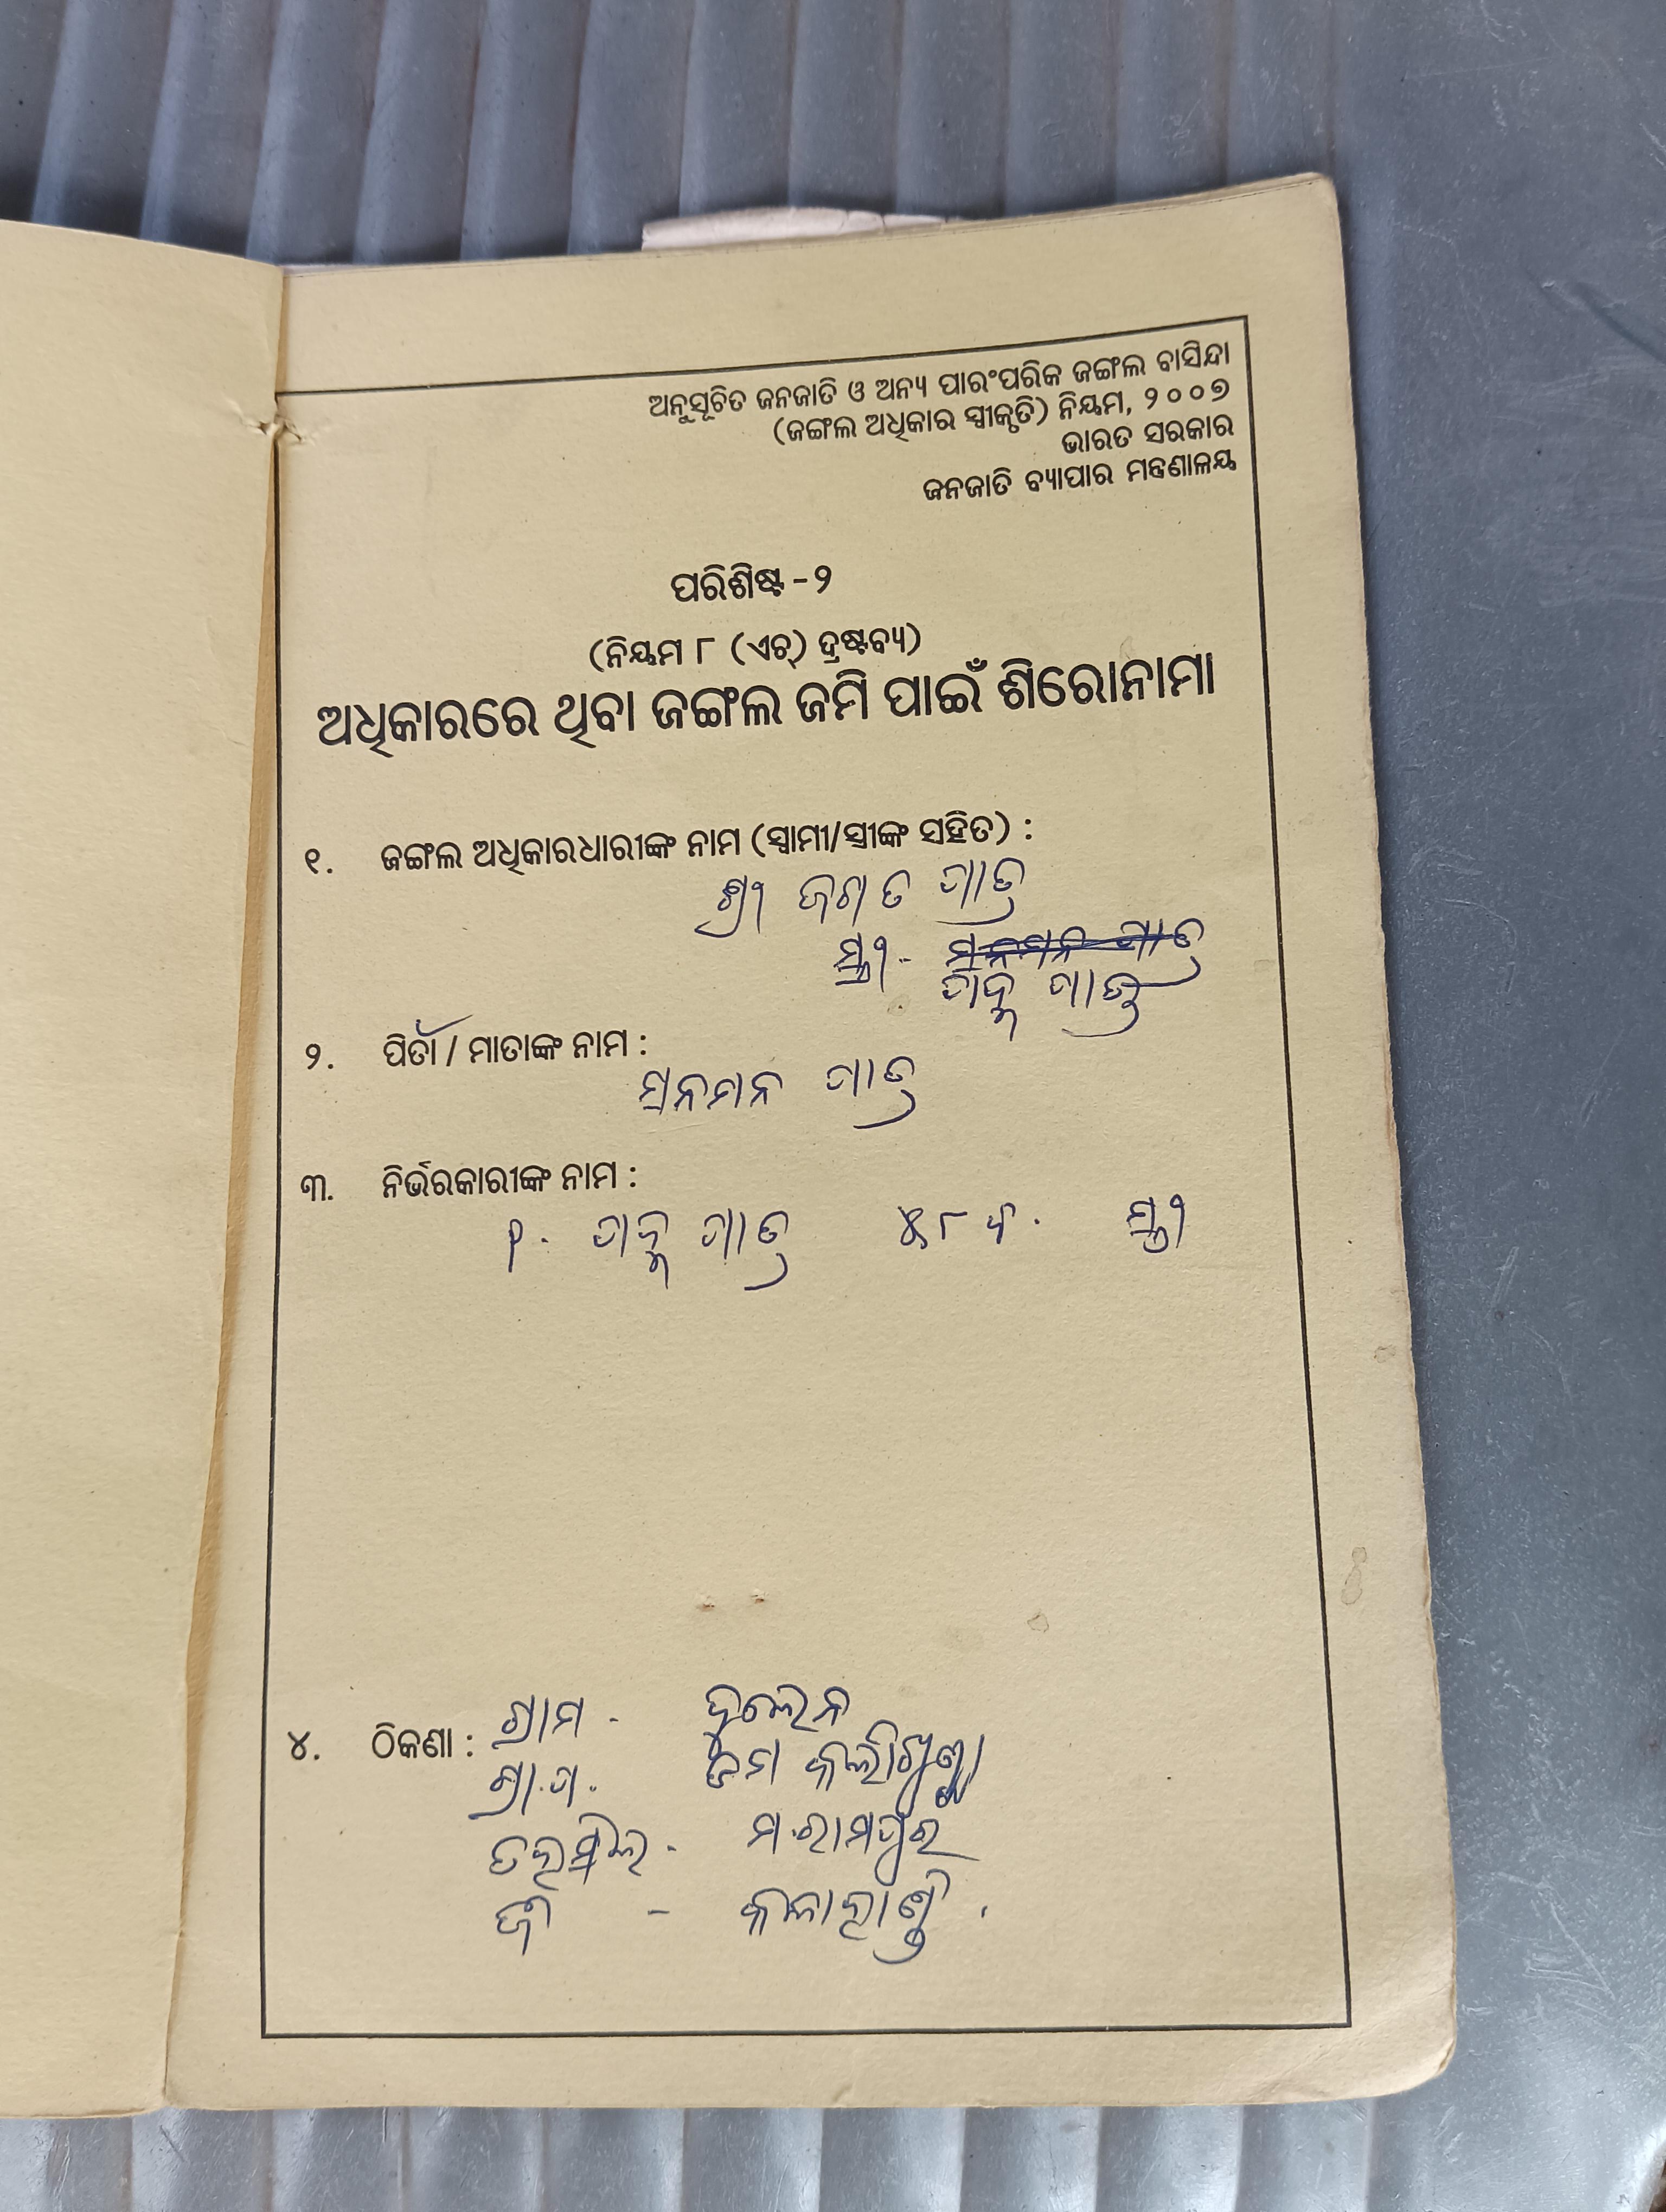 ଅନୁସୂଚିତ ଜନଜାତି ଓ ଅନ୍ୟ ପାରଂପରିକ ଜଙ୍ଗଲ ବାସିନ୍ଦା
(ଜଙ୍ଗଲ ଅଧିକାର ସ୍ୱୀକୃତି) ନିୟମ, ୨୦୦୭
ଭାରତ ସରକାର
ଜନଜାତି ବ୍ୟାପାର ମନ୍ତ୍ରଣାଳୟ
ପରିଶିଷ୍ଟ -୨
(ନିୟମ ୮ (ଏଚ୍) ଦ୍ରଷ୍ଟବ୍ୟ)
ଅଧିକାରରେ ଥିବା ଜଙ୍ଗଲ ଜମି ପାଇଁ ଶିରୋନାମା
୧. ଜଙ୍ଗଲ ଅଧିକାରଧାରୀଙ୍କ ନାମ (ସ୍ୱାମୀ/ସ୍ତ୍ରୀଙ୍କ ସହିତ) :
ଶ୍ରୀ ଜଗତ
ସ୍ତ୍ରୀ -
୨. ପିତା / ମାତାଙ୍କ ନାମ :
୩. ନିର୍ଭରକାରୀଙ୍କ ନାମ :
୧. ୫୮ ବ. ସ୍ତ୍ରୀ
୪. ଠିକଣା : ଗ୍ରାମ -
ଗ୍ରା.ପ.
ତହସିଲ - ମ.ରାମପୁର
ଜି - କଳାହାଣ୍ଡି.